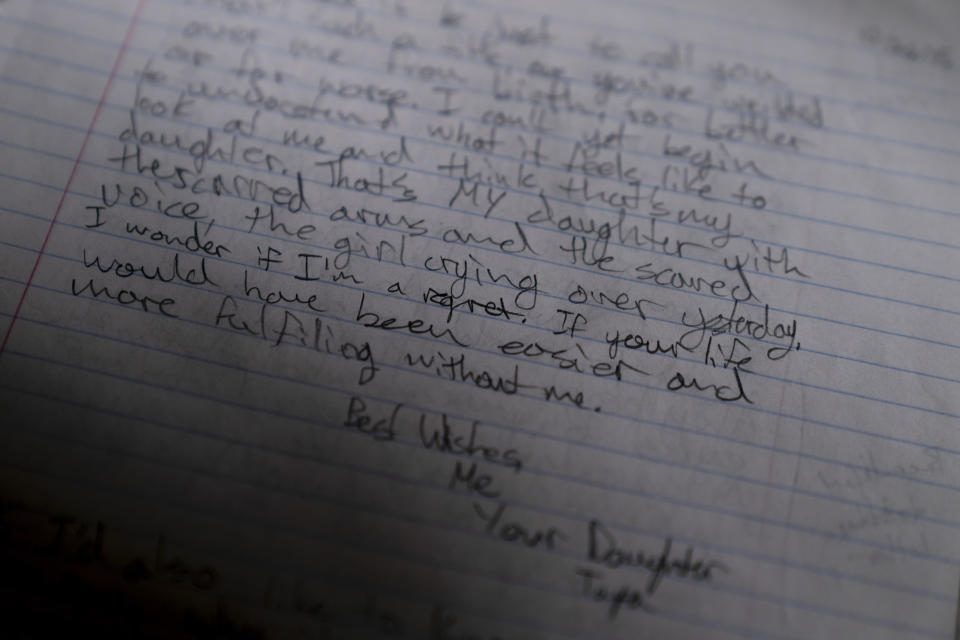 call you
such a as you've
over me from birth, for better
or for worse. I can't yet begin
to understand what it feels like to
look at me and think, that's my
daughter. That's My daughter with
the scarred arms and the scared
voice, the girl crying over yesterday.
I wonder if I'm a regret. If your life
would have been easier and
more fulfiling without me.
Best Wishes,
Me
Your Daughter
I'd also like to